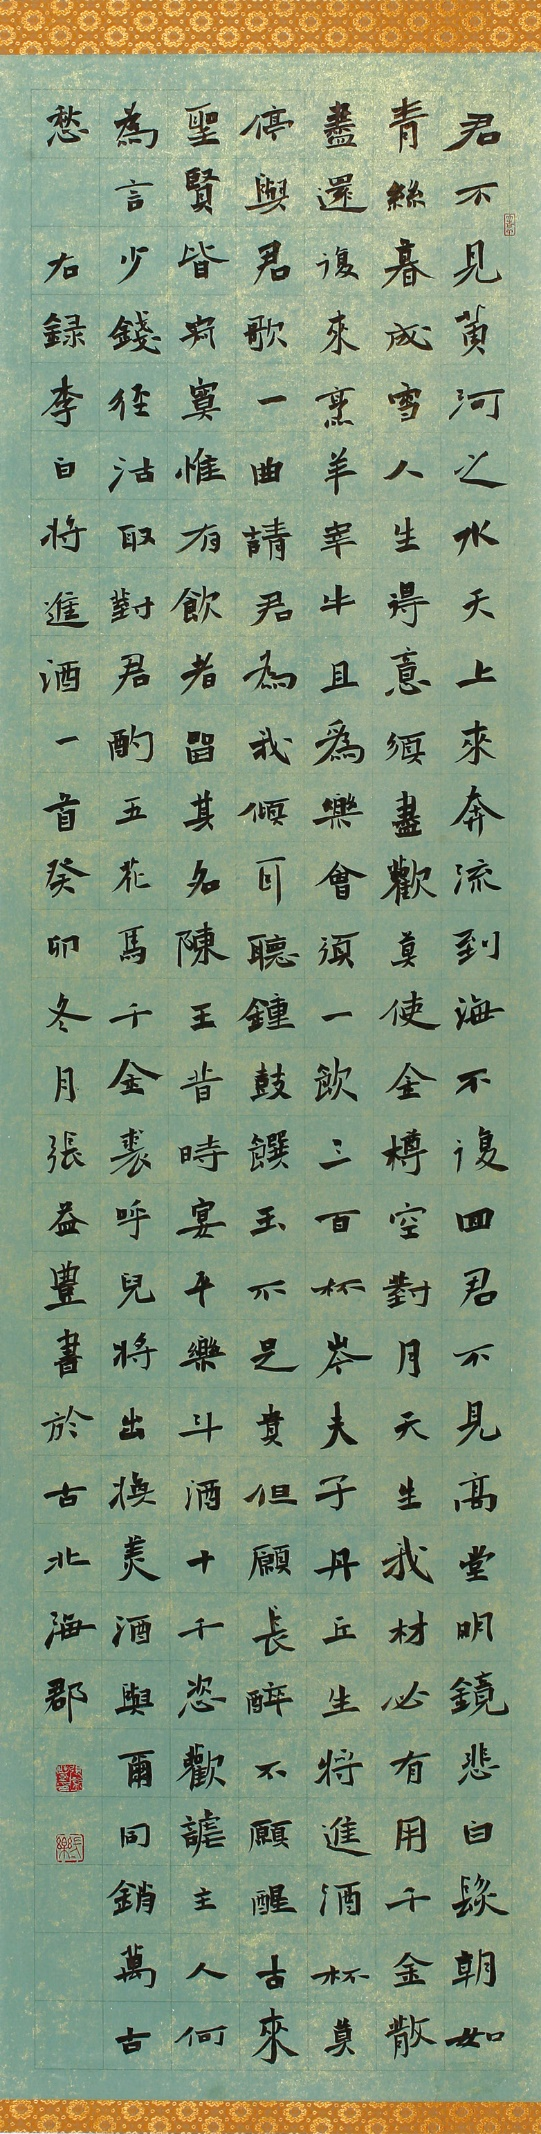 君不見黄河之水天上來奔流到海不復回君不見高堂明鏡悲白髮朝如
青絲暮成雪人生得意須盡歡莫使金樽空對月天生我材必有用千金散
盡還復來烹羊宰牛且爲樂會須一飲三百杯岑夫子丹丘生將進酒杯莫
停與君歌一曲請君為我傾耳聽鍾鼓饌玉不是貴但願長醉不願醒古來
聖賢皆寂寞惟有飲者留其名陳王昔時宴平樂斗酒十千恣歡謔主人何
為言少錢徑沽取對君酌五花馬千金裘呼兒將出換美酒與爾同銷萬古
愁 右録李白將進酒一首癸卯冬月張益豐書於古北海郡